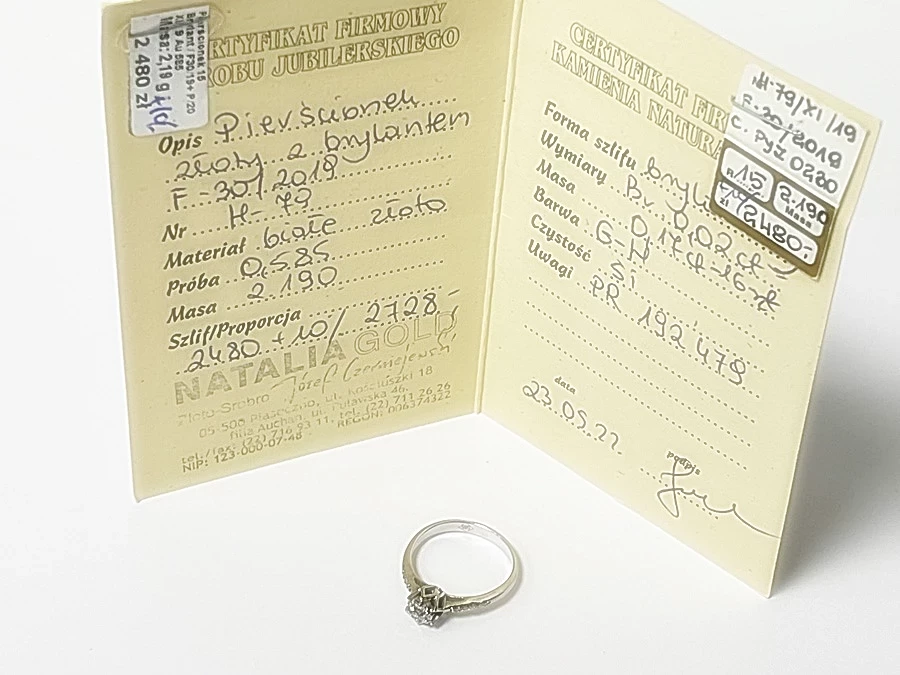 Pierścionek 15
Brylant / F30/19+ P/20
XI/19 Au 585
Masa: 2,19 g
2 480 zł
CERTYFIKAT FIRMOWY
WYROBU JUBILERSKIEGO
Opis Pierścionek
złoty z brylantem
F-30/2019
Nr H-79
Materiał białe złoto
Próba 0,585
Masa 2,190
Szlif/Proporcja
2480 + 10/ 2728,-
NATALIA GOLD
Złoto-Srebro
05-500 Piaseczno, ul. Kościuszki 18
filia Auchan, ul. Puławska 46,
tel./fax: (22) 716 93 11, tel. (22) 711 26 26
NIP: 123-000-07-48 REGON: 006374322
CERTYFIKAT FIR
KAMIENIA NATURA
Forma szlifu bryl
Wymiary Br. 0,02 ct
Masa 0,17ct-16szt
Barwa G-H
Czystość Si
Uwagi PR 192479
data
23.05.22
podpis
H-79/XI/19
F-30/2019
C. PYZ 0280
R. 15
2.190
Masa
zł 2480,-